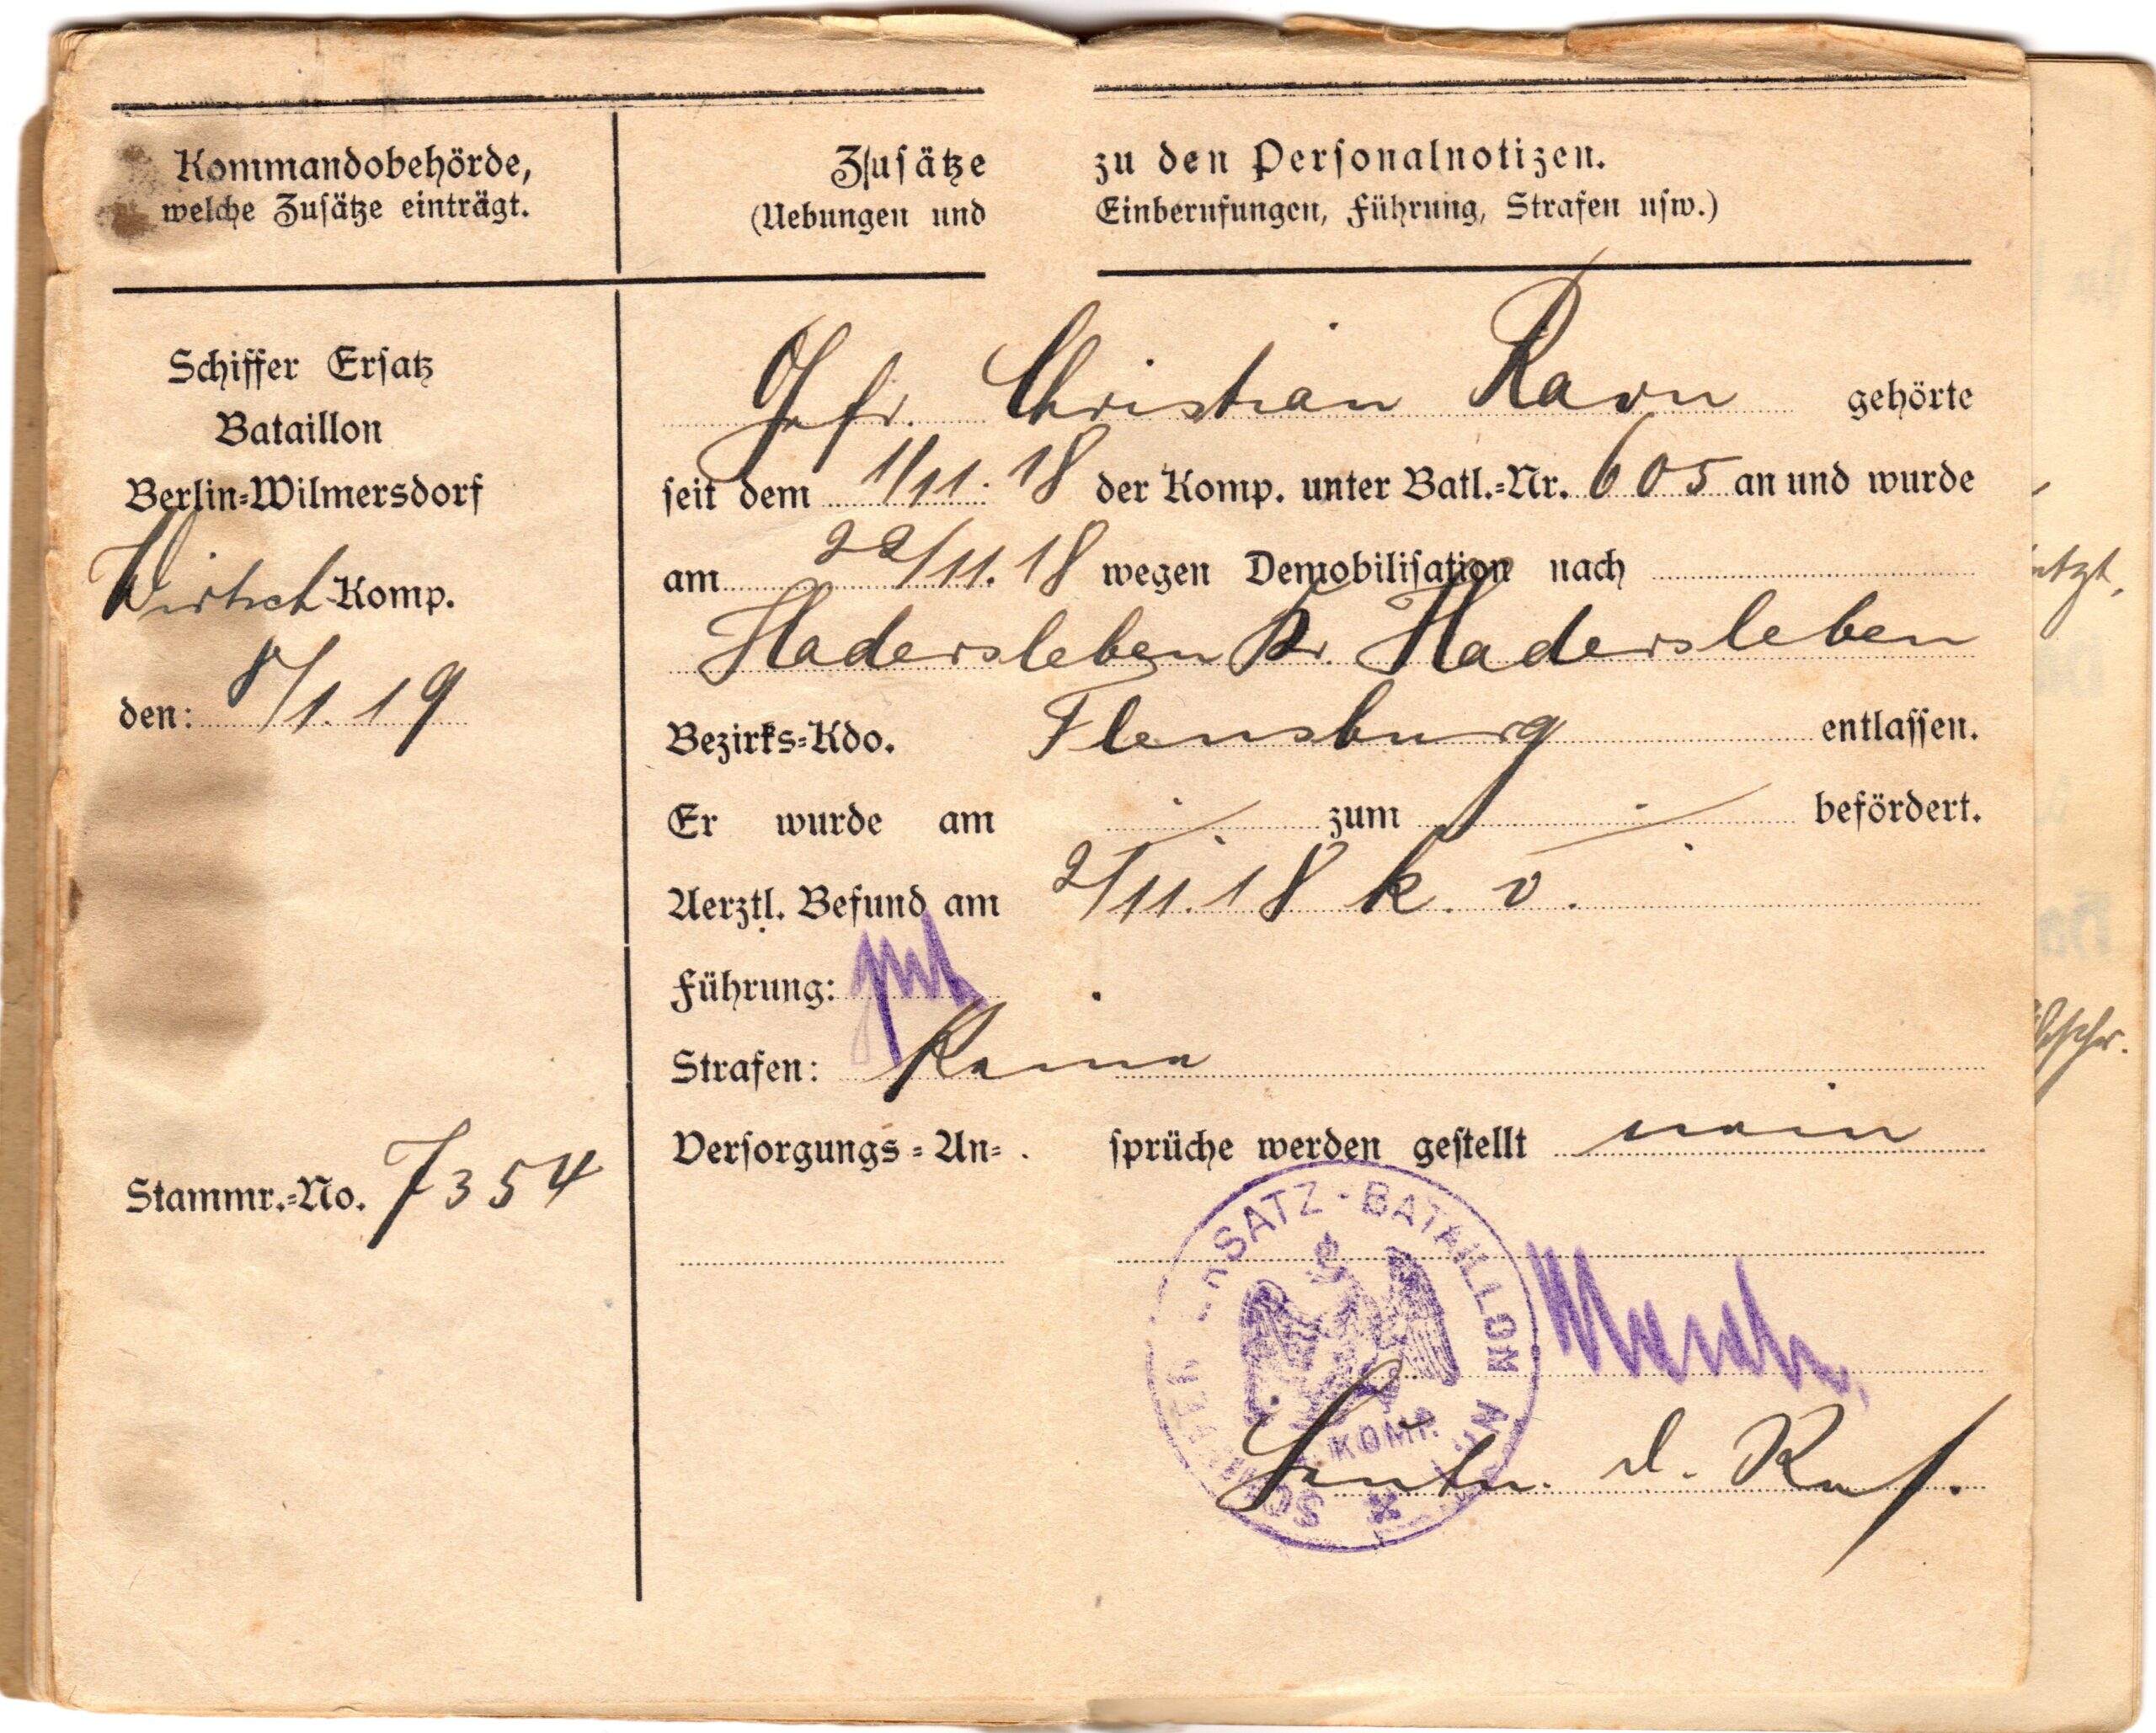 Kommandobehörde,
welche Zusätze einträgt.
Zusätze zu den Personalnotizen.
(Uebungen und Einberufungen, Führung, Strafen usw.)
Schiffer Ersatz
Bataillon
Berlin-Wilmersdorf
Wirtsch Komp.
den: 8/1.19
Stammr.-No. 7354
Gefr. Christian Ravn gehörte
seit dem 1/11.18 der Komp. unter Batl.-Nr. 605 an und wurde
am 22/11.18 wegen Demobilisation nach
Hadersleben Kr. Hadersleben
Bezirks-Kdo. Flensburg entlassen.
Er wurde am ./. zum ./. befördert.
Aerztl. Befund am 2/11.18 k. v.
Führung: gut
Strafen: Keine
Versorgungs-Ansprüche werden gestellt nein
SCHIFFER ERSATZ-BATAILLON Nr.
KOMP.
Leutn. d. Res.
etzt,